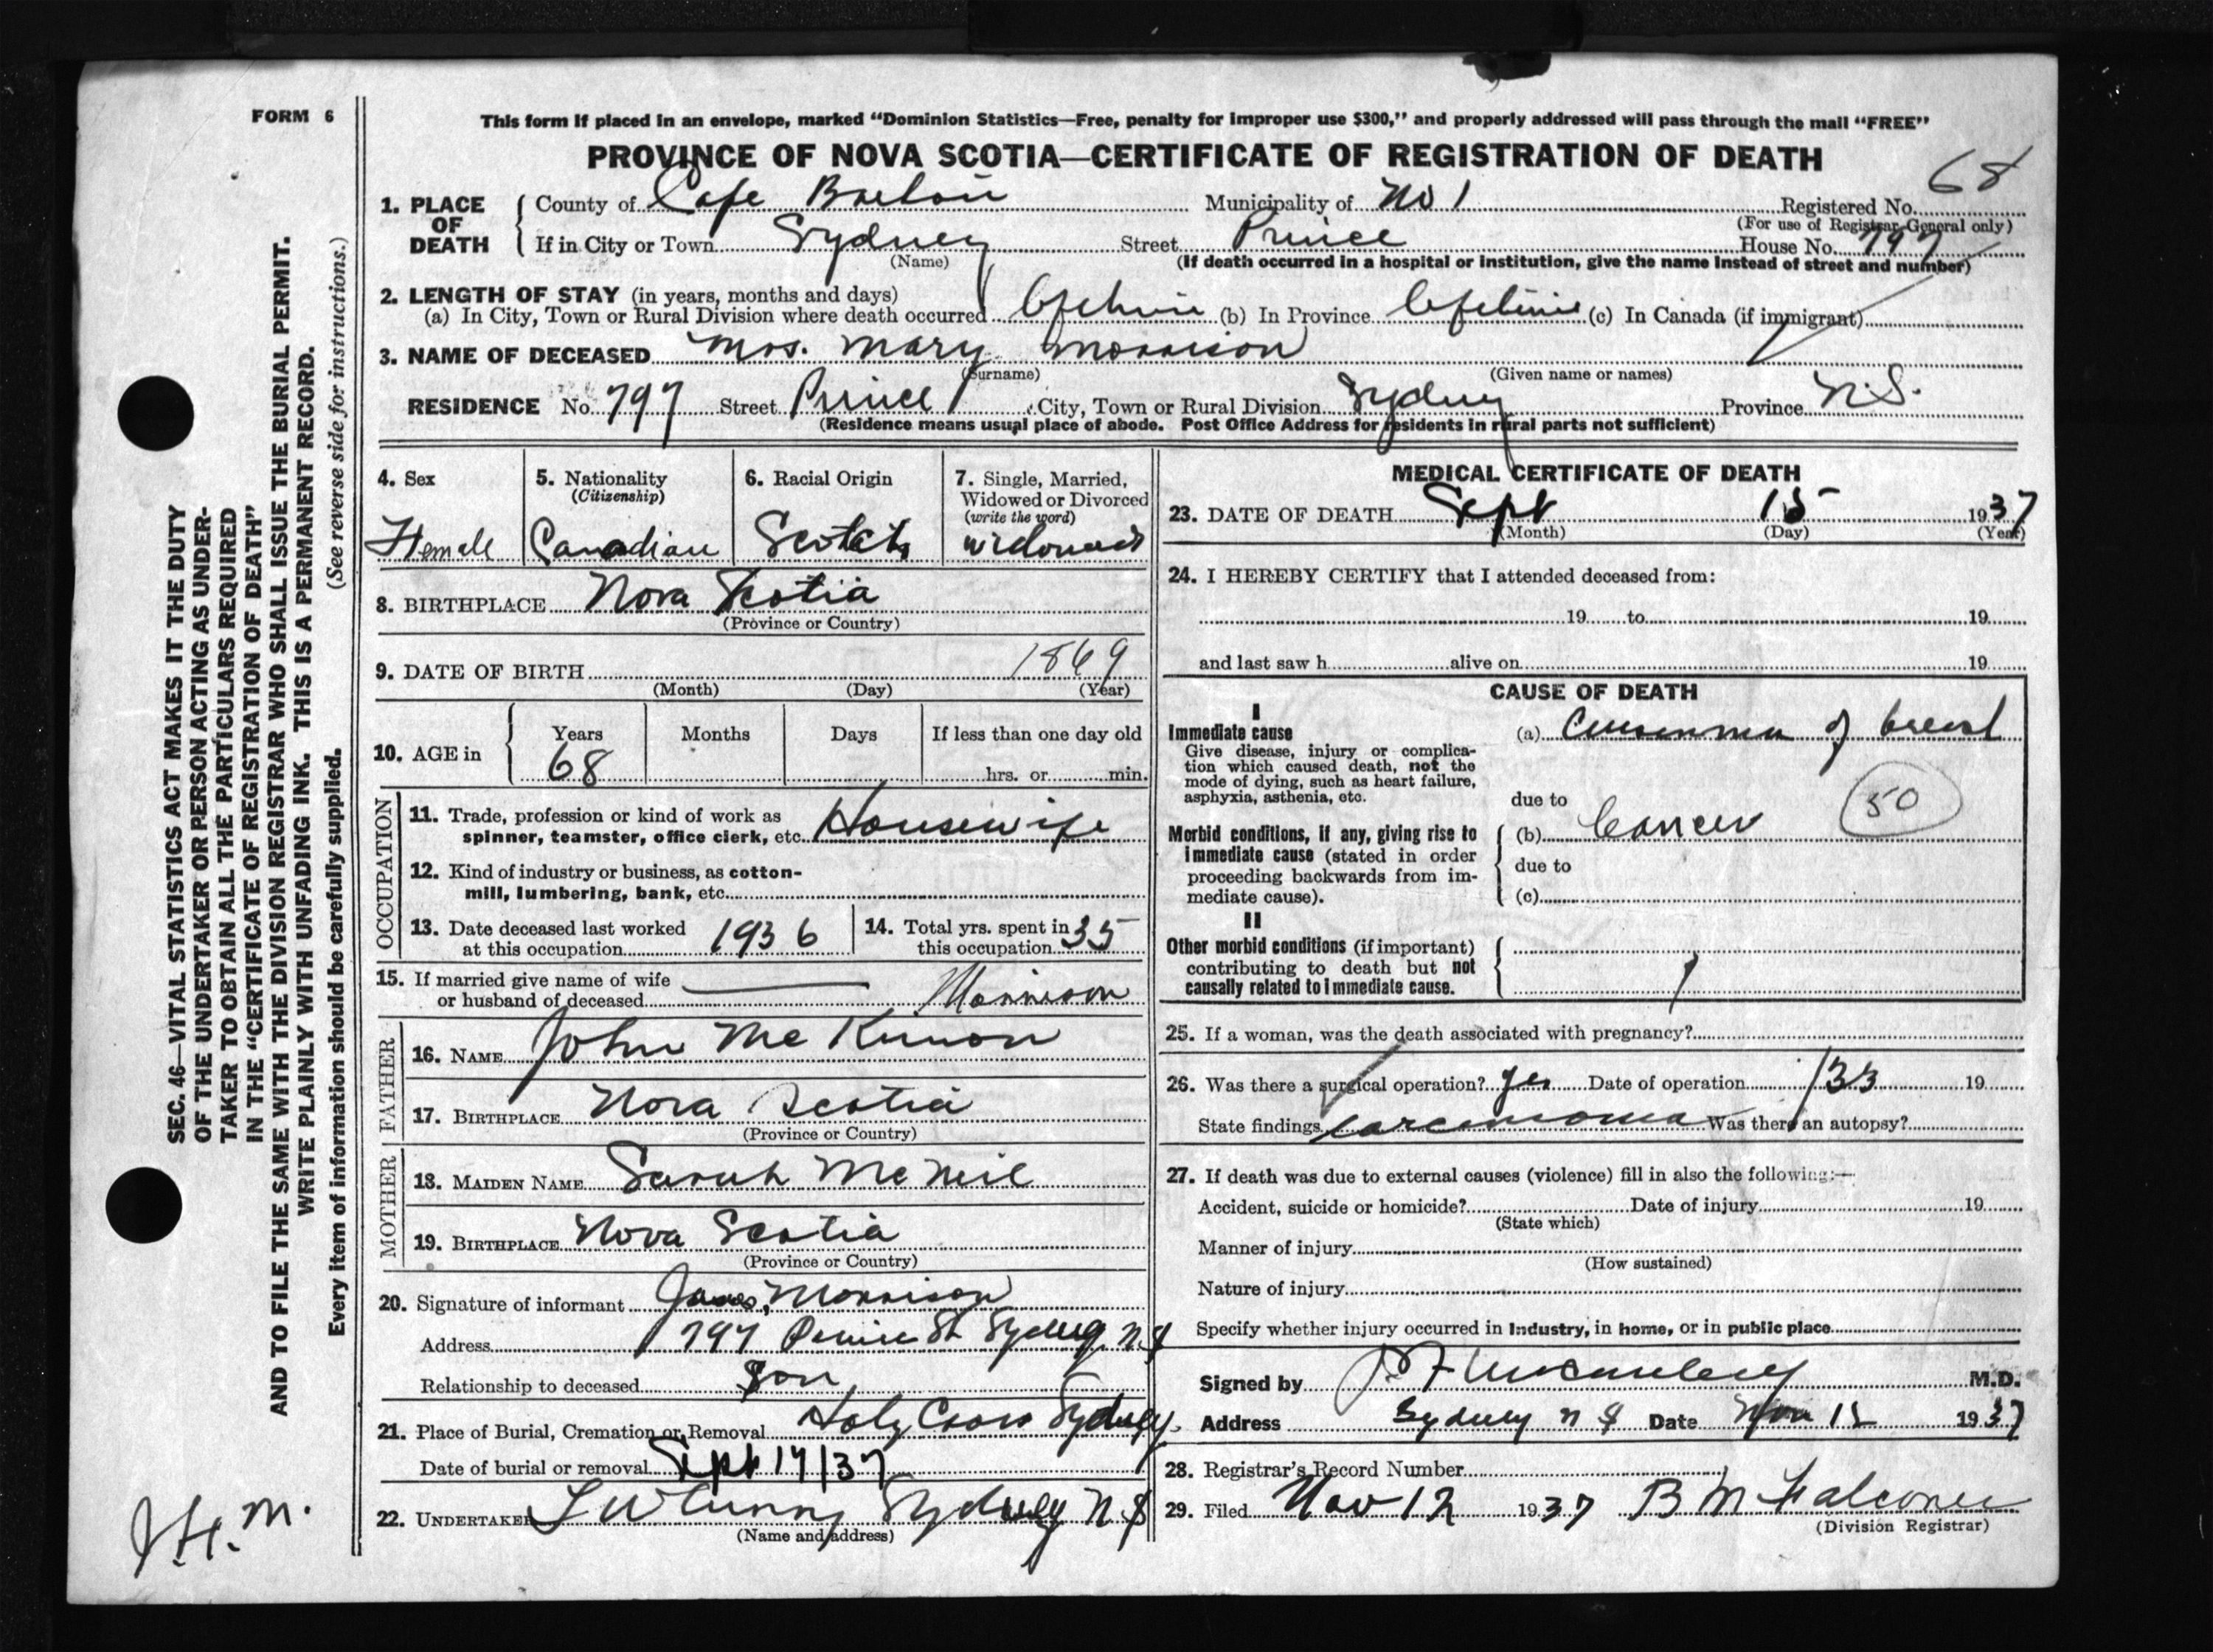 FORM 6
This form if placed in an envelope, marked “Dominion Statistics—Free, penalty for improper use $300,” and properly addressed will pass through the mail “FREE”
PROVINCE OF NOVA SCOTIA—CERTIFICATE OF REGISTRATION OF DEATH
68
1. PLACE OF DEATH { County of Cape Breton Municipality of No 1 Registered No.
(For use of Registrar-General only)
If in City or Town Sydney Street Prince House No. 797
(Name) (If death occurred in a hospital or institution, give the name instead of street and number)
2. LENGTH OF STAY (in years, months and days)
(a) In City, Town or Rural Division where death occurred Lifetime (b) In Province Lifetime (c) In Canada (if immigrant)
3. NAME OF DECEASED Mrs. Mary Morrison
(Surname) (Given name or names)
RESIDENCE No. 797 Street Prince City, Town or Rural Division Sydney Province N.S.
(Residence means usual place of abode. Post Office Address for residents in rural parts not sufficient)
4. Sex
Female
5. Nationality
(Citizenship)
Canadian
6. Racial Origin
Scotch
7. Single, Married,
Widowed or Divorced
(write the word)
widowed
8. BIRTHPLACE Nova Scotia
(Province or Country)
9. DATE OF BIRTH 1869
(Month) (Day) (Year)
10. AGE in { Years Months Days If less than one day old
68 hrs. or min.
OCCUPATION
11. Trade, profession or kind of work as
spinner, teamster, office clerk, etc. Housewife
12. Kind of industry or business, as cotton-
mill, lumbering, bank, etc.
13. Date deceased last worked
at this occupation 1936
14. Total yrs. spent in
this occupation 35
15. If married give name of wife
or husband of deceased — Morrison
FATHER
16. NAME John McKinnon
17. BIRTHPLACE Nova Scotia
(Province or Country)
MOTHER
18. MAIDEN NAME Sarah McNeil
19. BIRTHPLACE Nova Scotia
(Province or Country)
20. Signature of informant James Morrison
Address 797 Prince St Sydney N.S
Relationship to deceased Son
21. Place of Burial, Cremation or Removal Holy Cross Sydney
Date of burial or removal Sept 17/37
22. UNDERTAKER Sydney N S
(Name and address)
MEDICAL CERTIFICATE OF DEATH
23. DATE OF DEATH Sept 15 1937
(Month) (Day) (Year)
24. I HEREBY CERTIFY that I attended deceased from:
19 to 19
and last saw h alive on 19
CAUSE OF DEATH
I
Immediate cause
Give disease, injury or complica-
tion which caused death, not the
mode of dying, such as heart failure,
asphyxia, asthenia, etc.
(a) Carcinoma of breast
due to
50
Morbid conditions, if any, giving rise to
immediate cause (stated in order
proceeding backwards from im-
mediate cause).
(b) Cancer
due to
(c)
II
Other morbid conditions (if important)
contributing to death but not
causally related to immediate cause.
25. If a woman, was the death associated with pregnancy?
26. Was there a surgical operation? yes Date of operation 133 19
State findings carcinoma Was there an autopsy?
27. If death was due to external causes (violence) fill in also the following:—
Accident, suicide or homicide? Date of injury 19
(State which)
Manner of injury
(How sustained)
Nature of injury
Specify whether injury occurred in industry, in home, or in public place
Signed by M.D.
Address Sydney N S Date Nov 1937
28. Registrar's Record Number
29. Filed Nov 12 1937 B M Falconer
(Division Registrar)
SEC. 46—VITAL STATISTICS ACT MAKES IT THE DUTY
OF THE UNDERTAKER OR PERSON ACTING AS UNDER-
TAKER TO OBTAIN ALL THE PARTICULARS REQUIRED
IN THE “CERTIFICATE OF REGISTRATION OF DEATH”
AND TO FILE THE SAME WITH THE DIVISION REGISTRAR WHO SHALL ISSUE THE BURIAL PERMIT.
WRITE PLAINLY WITH UNFADING INK. THIS IS A PERMANENT RECORD.
Every item of information should be carefully supplied. (See reverse side for instructions.)
J.H.M.